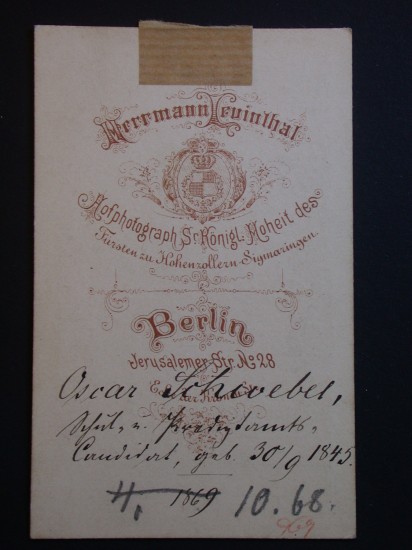 Herrmann Levinthal
Hofphotograph Sr. Königl. Hoheit des
Fürsten zu Hohenzollern Sigmaringen.
Berlin
Jerusalemer-Str. No. 28
Oscar Schwebel,
Schul- u. Predigtamts-
Candidat, geb. 30/9 1845.
1869 10.68.